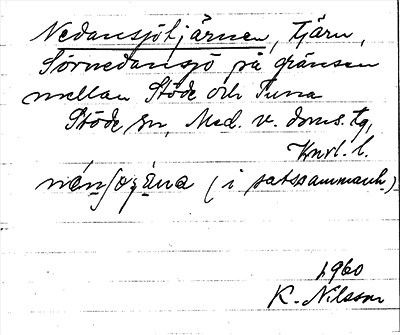 Nedansjötjärnen, tjärn,
Sörnedansjö på gränsen
mellan Stöde och Tuna
Stöde sn, Med. v. doms. tg,
Knvl. l.
(i satssammanh.)
1960
K. Nilsson